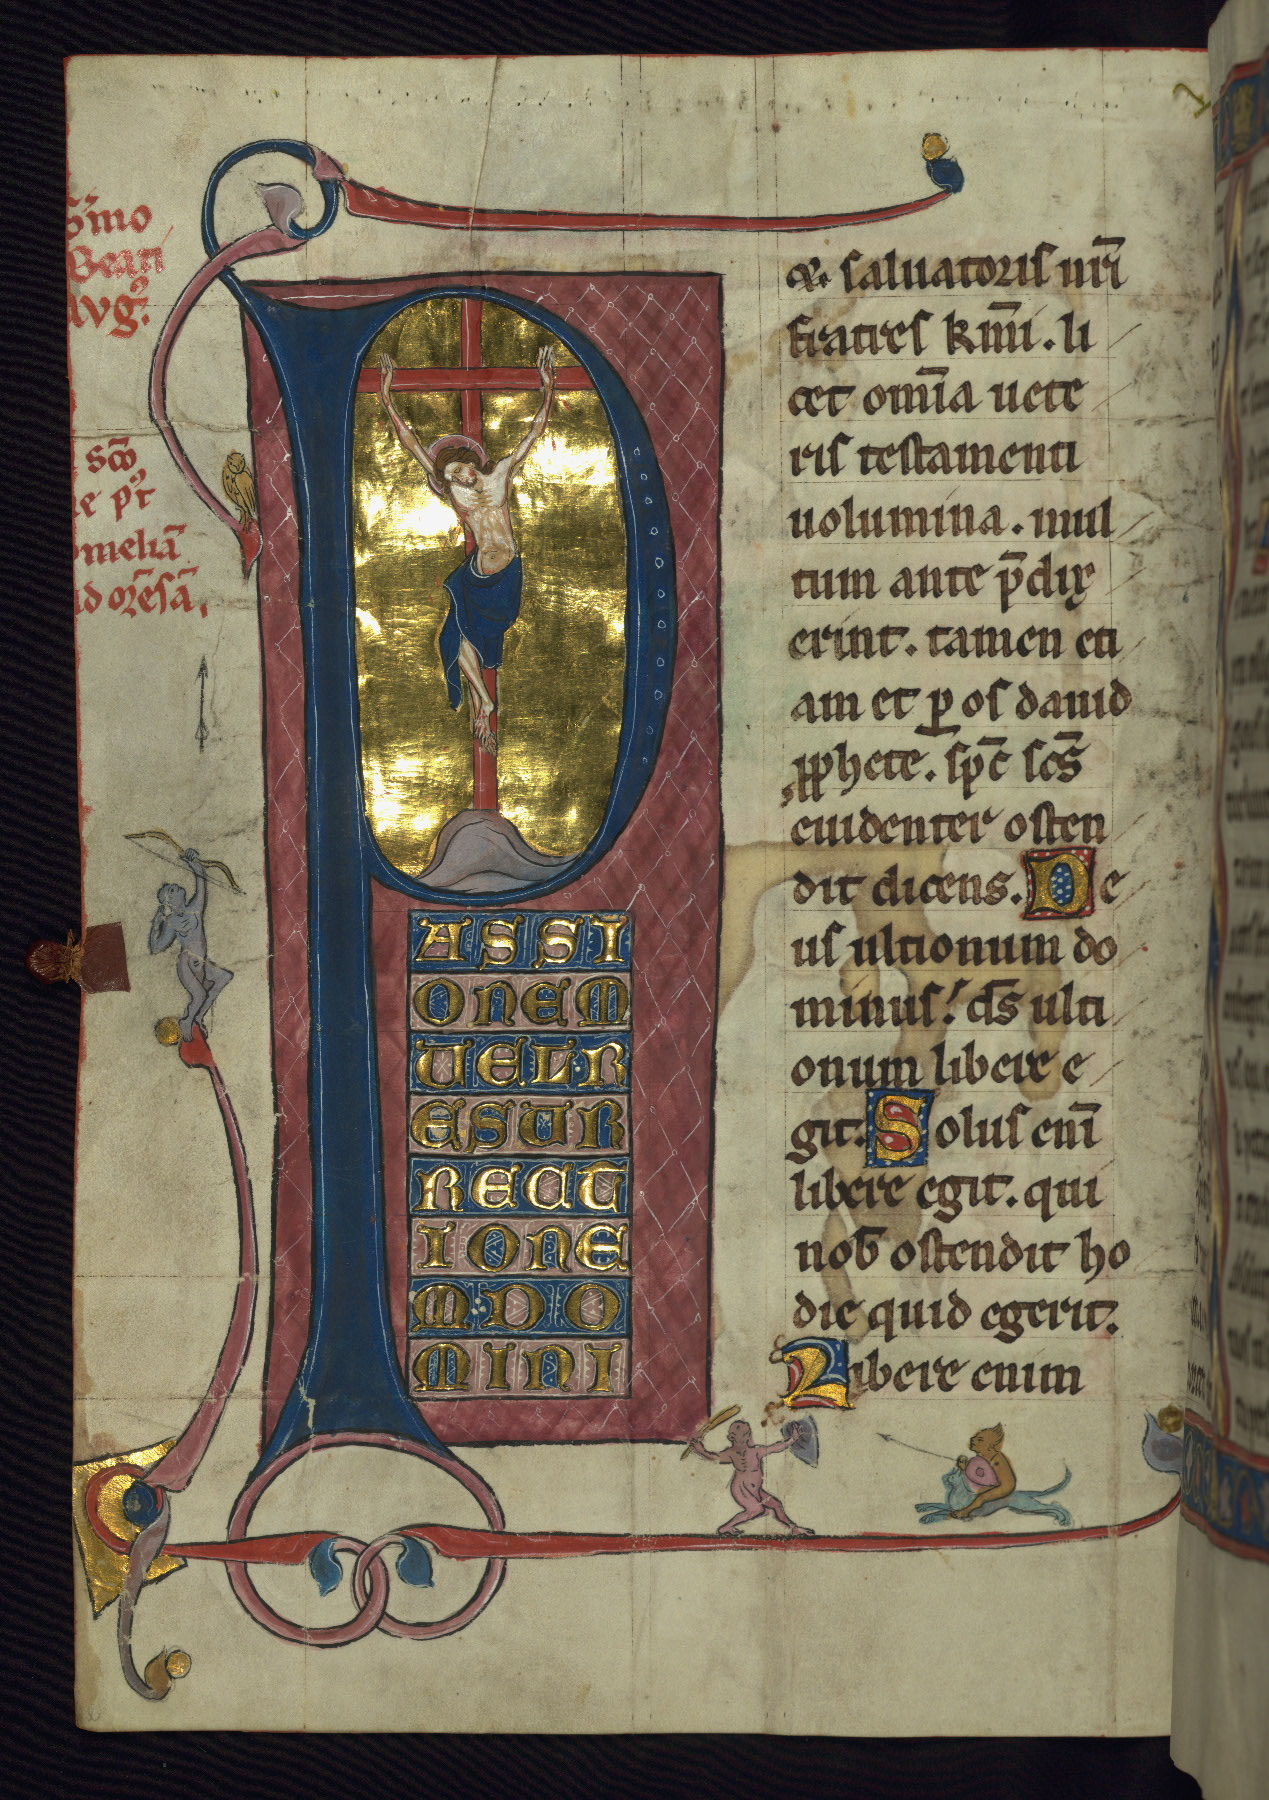 s̄imo
Beati
Avgꝰ.
sc̄o
e pꝰt
omeliā
ad oꝛ̄esā.
P
ASSI
ONEM
UELR
ESUR
RECT
IONE
MDO
MINI
saluatoris nr̄i
fratres kmi̅. li
cet om̅ia uete
ris testamenti
uolumina. mul
tum ante p̄dix
erint. tamen eti
am et ꝑ os dauid
ꝓphete. sp̄c sc̄s
euidenter osten
dit dicens. De
us ultionum do
minus! ds̄ ulti
onum libere e
git. Solus eni̅
libere egit. qui
nob̄ ostendit ho
die quid egerit.
Libere enim